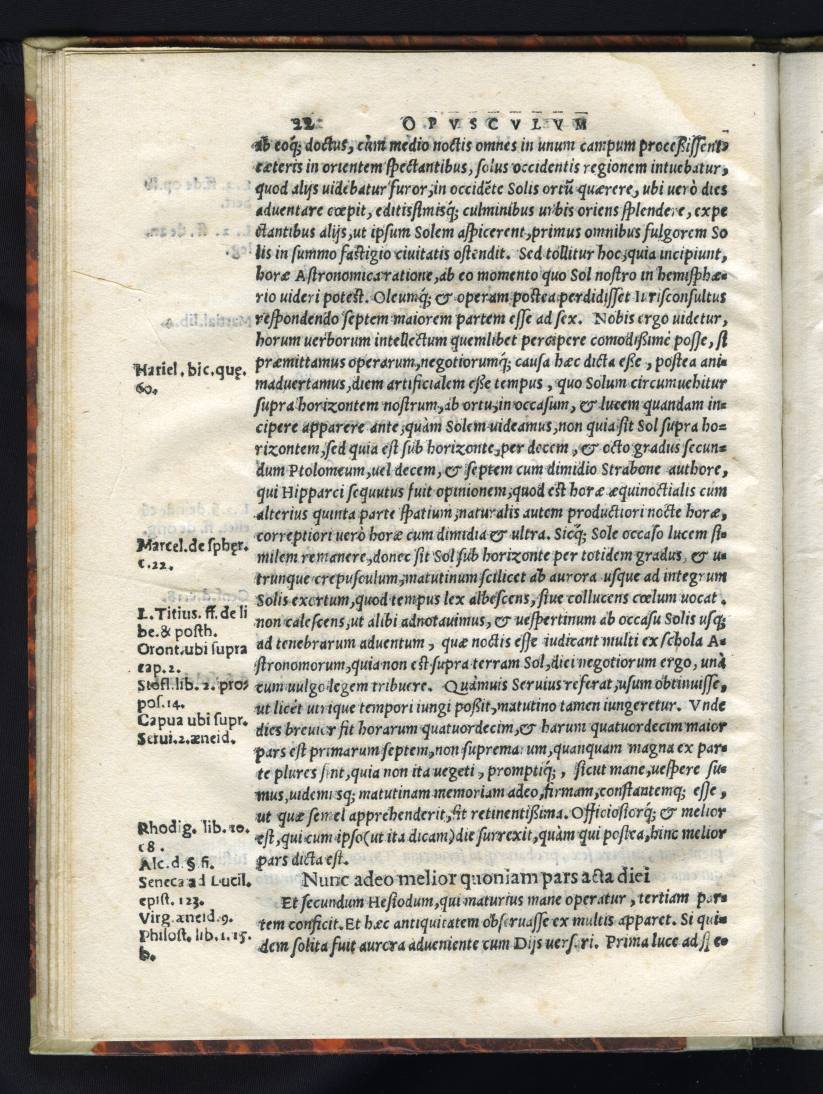 22 OPVSCVLVM
ab eoq́; doctus, cùm medio noctis omnes in unum campum proceßiſſent,
cæteris in orientem ſpectantibus, ſolus occidentis regionem intuebatur,
quod alijs uidebatur furor, in occidēte Solis ortū quærere, ubi uerò dies
aduentare cœpit, editiſſimisq́; culminibus urbis oriens ſplendere, expe
ctantibus alijs, ut ipſum Solem aſpicerent, primus omnibus fulgorem So
lis in ſummo faſtigio ciuitatis oſtendit. Sed tollitur hoc, quia incipiunt,
horæ Aſtronomica ratione, ab eo momento quo Sol noſtro in hemiſphæ=
rio uideri poteſt. Oleumq́; & operam poſtea perdidiſſet Iuriſconſultus
reſpondendo ſeptem maiorem partem eſſe ad ſex. Nobis ergo uidetur,
horum uerborum intellectum quemlibet percipere comodißimè poſſe, ſi
præmittamus operarum, negotiorumq́; cauſa hæc dicta eße, poſtea ani=
maduertamus, diem artificialem eße tempus, quo Solum circumuehitur
ſupra horizontem noſtrum, ab ortu, in occaſum, & lucem quandam in=
cipere apparere ante, quàm Solem uideamus, non quia ſit Sol ſupra ho=
rizontem, ſed quia eſt ſub horizonte, per decem, & octo gradus ſecun=
dum Ptolomeum, uel decem, & ſeptem cum dimidio Strabone authore,
qui Hipparci ſequutus fuit opinionem, quod eſt horæ æquinoctialis cum
alterius quinta parte ſpatium, naturalis autem productiori nocte horæ,
correptiori uerò horæ cum dimidia & ultra. Sicq́; Sole occaſo lucem ſi=
milem remanere, donec ſit Sol ſub horizonte per totidem gradus, & u=
trunque crepuſculum, matutinum ſcilicet ab aurora uſque ad integrum
Solis exortum, quod tempus lex albeſcens, ſiue collucens cœlum uocat.
non caleſcens, ut alibi adnotauimus, & ueſpertinum ab occaſu Solis uſq́;
ad tenebrarum aduentum, quæ noctis eſſe iudicant multi ex ſchola A=
ſtronomorum, quia non eſt ſupra terram Sol, diei negotiorum ergo, unà
cum uulgo legem tribuere. Quámuis Seruius referat, uſum obtinuiſſe,
ut licèt utrique tempori iungi poßit, matutino tamen iungeretur. Vnde
dies breuior fit horarum quatuordecim, & harum quatuordecim maior
pars eſt primarum ſeptem, non ſupremarum, quanquam magna ex par=
te plures ſint, quia non ita uegeti, promptiq́;, ſicut mane, ueſpere ſu=
mus, uidemusq́; matutinam memoriam adeo, firmam, conſtantemq́; eſſe,
ut quæ ſemel apprehenderit, ſit retinentißima. Officioſiorq́; & melior
eſt, qui cum ipſo (ut ita dicam) die ſurrexit, quàm qui poſtea, hinc melior
pars dicta eſt.
Nunc adeo melior quoniam pars acta diei
Et ſecundum Heſiodum, qui maturius mane operatur, tertiam par=
tem conficit. Et hæc antiquitatem obſeruaſſe ex multis apparet. Si qui=
dem ſolita fuit aurora adueniente cum Dijs uerſari. Prima luce ad
Hariel. hic. quę.
60.
Marcel. de ſphęr.
c. 22.
L. Titius. ff. de li
be. & poſth.
Oront. ubi ſupra
cap. 2.
Stofl. lib. 2. pro=
poſ. 14.
Capua ubi ſupr.
Serui. 2. æneid.
Rhodig. lib. 10.
c 8.
Alc. d. §. fi.
Seneca ad Lucil.
epiſt. 123.
Virg. æneid. 9.
Philoſt. lib. 1. 15.
b.